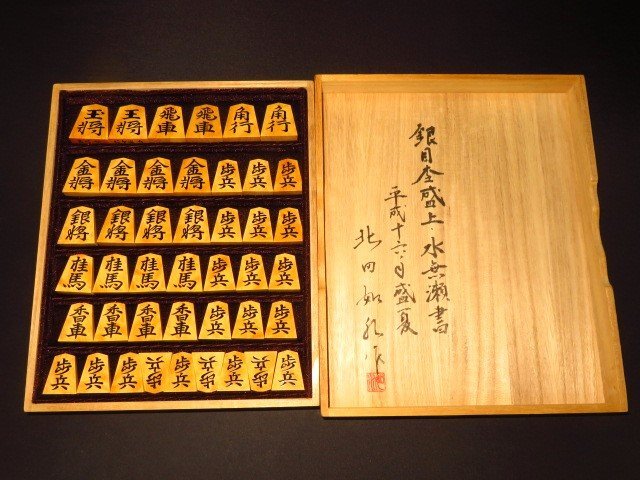 玉将 王将 飛車 飛車 角行 角行
金将 金将 金将 金将 歩兵 歩兵 歩兵
銀将 銀将 銀将 銀将 歩兵 歩兵 歩兵
桂馬 桂馬 桂馬 桂馬 歩兵 歩兵 歩兵
香車 香車 香車 香車 歩兵 歩兵 歩兵
歩兵 歩兵 歩兵 歩兵 歩兵 歩兵 歩兵 歩兵
銀目杢盛上 水無瀬書
平成十六 盛夏
北田如水作